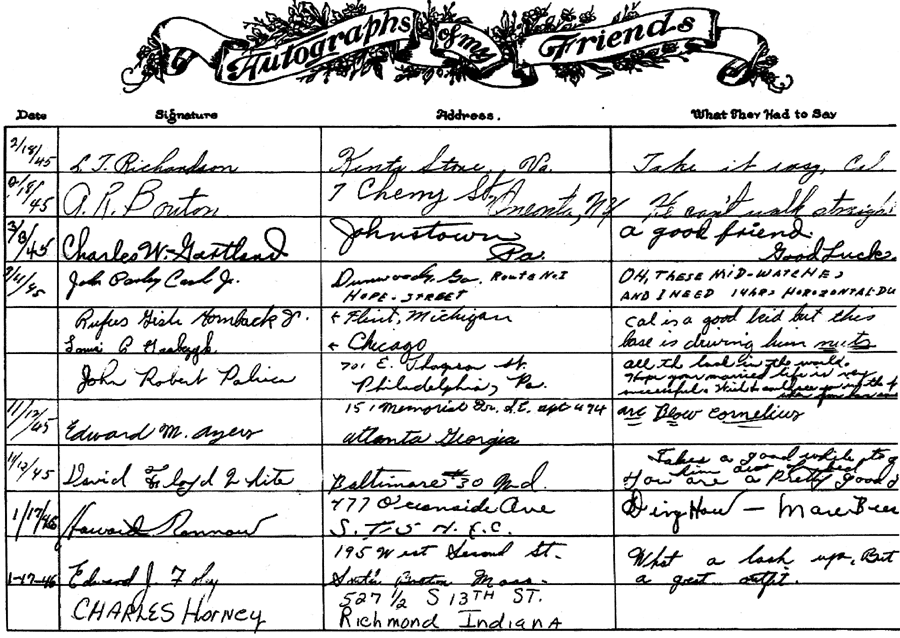 Autographs of my Friends
Date Signature Address. What They Had to Say
2/18/45 L. T. Richardson Va. Take it easy, Cal.
2/18/45 A. R. Bouton 7 Cherry St. Oneonta, NY He can't walk straigh
3/3/45 Charles W. Gartland Johnstown Pa. a good friend. Good Luck.
John Cash Jr. Dunwoody, Ga. Route No.1 OH, THESE MID-WATCHES
HOPE-STREET AND I NEED 14 HRS HORIZONTAL-DU
Rufus Hornback Jr. Flint, Michigan Cal is a good kid but this
Chicago base is driving him nuts
John Robert 701 E. Thompson St. all the luck in the world.
Philadelphia, Pa. Hope your married life is very successful.
11/12/45 Edward M. Ayers 151 Memorial Dr. S.E. apt 494 Blow Cornelius
Atlanta Georgia
11/12/45 David Floyd Baltimore #30 Md. Takes a good while to
You are a Pretty good
1/17/46 Howard 477 Oceanside Ave Ding How —
S.
195 West Second St. What a But
1-17-46 Edward J. Foley Boston Mass. a great outfit.
CHARLES HORNEY 527 1/2 S 13TH ST.
Richmond Indiana